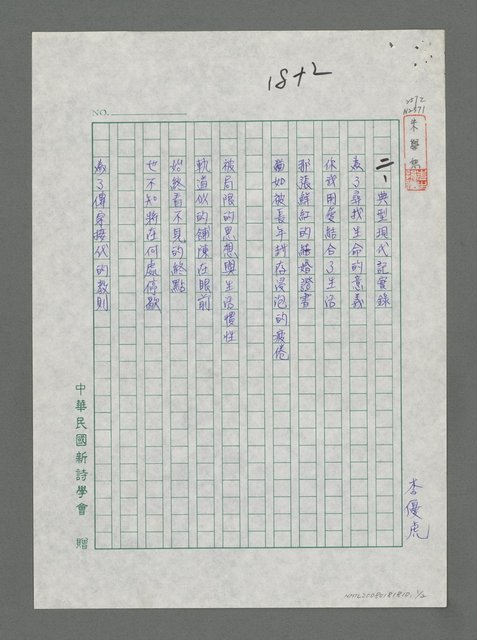 18+2
NO.
朱學恕
二、典型現代記實錄
為了尋找生命的意義
你我用愛結合了生活
那張鮮紅的結婚證書
猶如被長年封存浸泡的疲倦
被局限的思想與生活慣性
軌道似的鋪陳在眼前
始終看不見的終點
也不知將在何處停歇
為了傳宗接代的教則
中華民國新詩學會 贈
李優虎